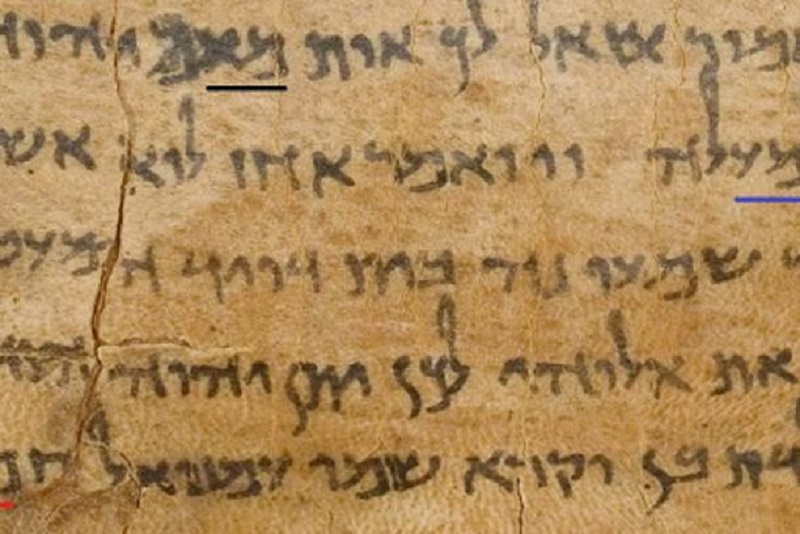 שאל לך אות מאם יהו
מעלה ויואמר אחז לוא אש
שמעו נא בית דויד המעט
את אלוהי לכן יתן יהוה
בן וקרא שמו עמנואל חמ